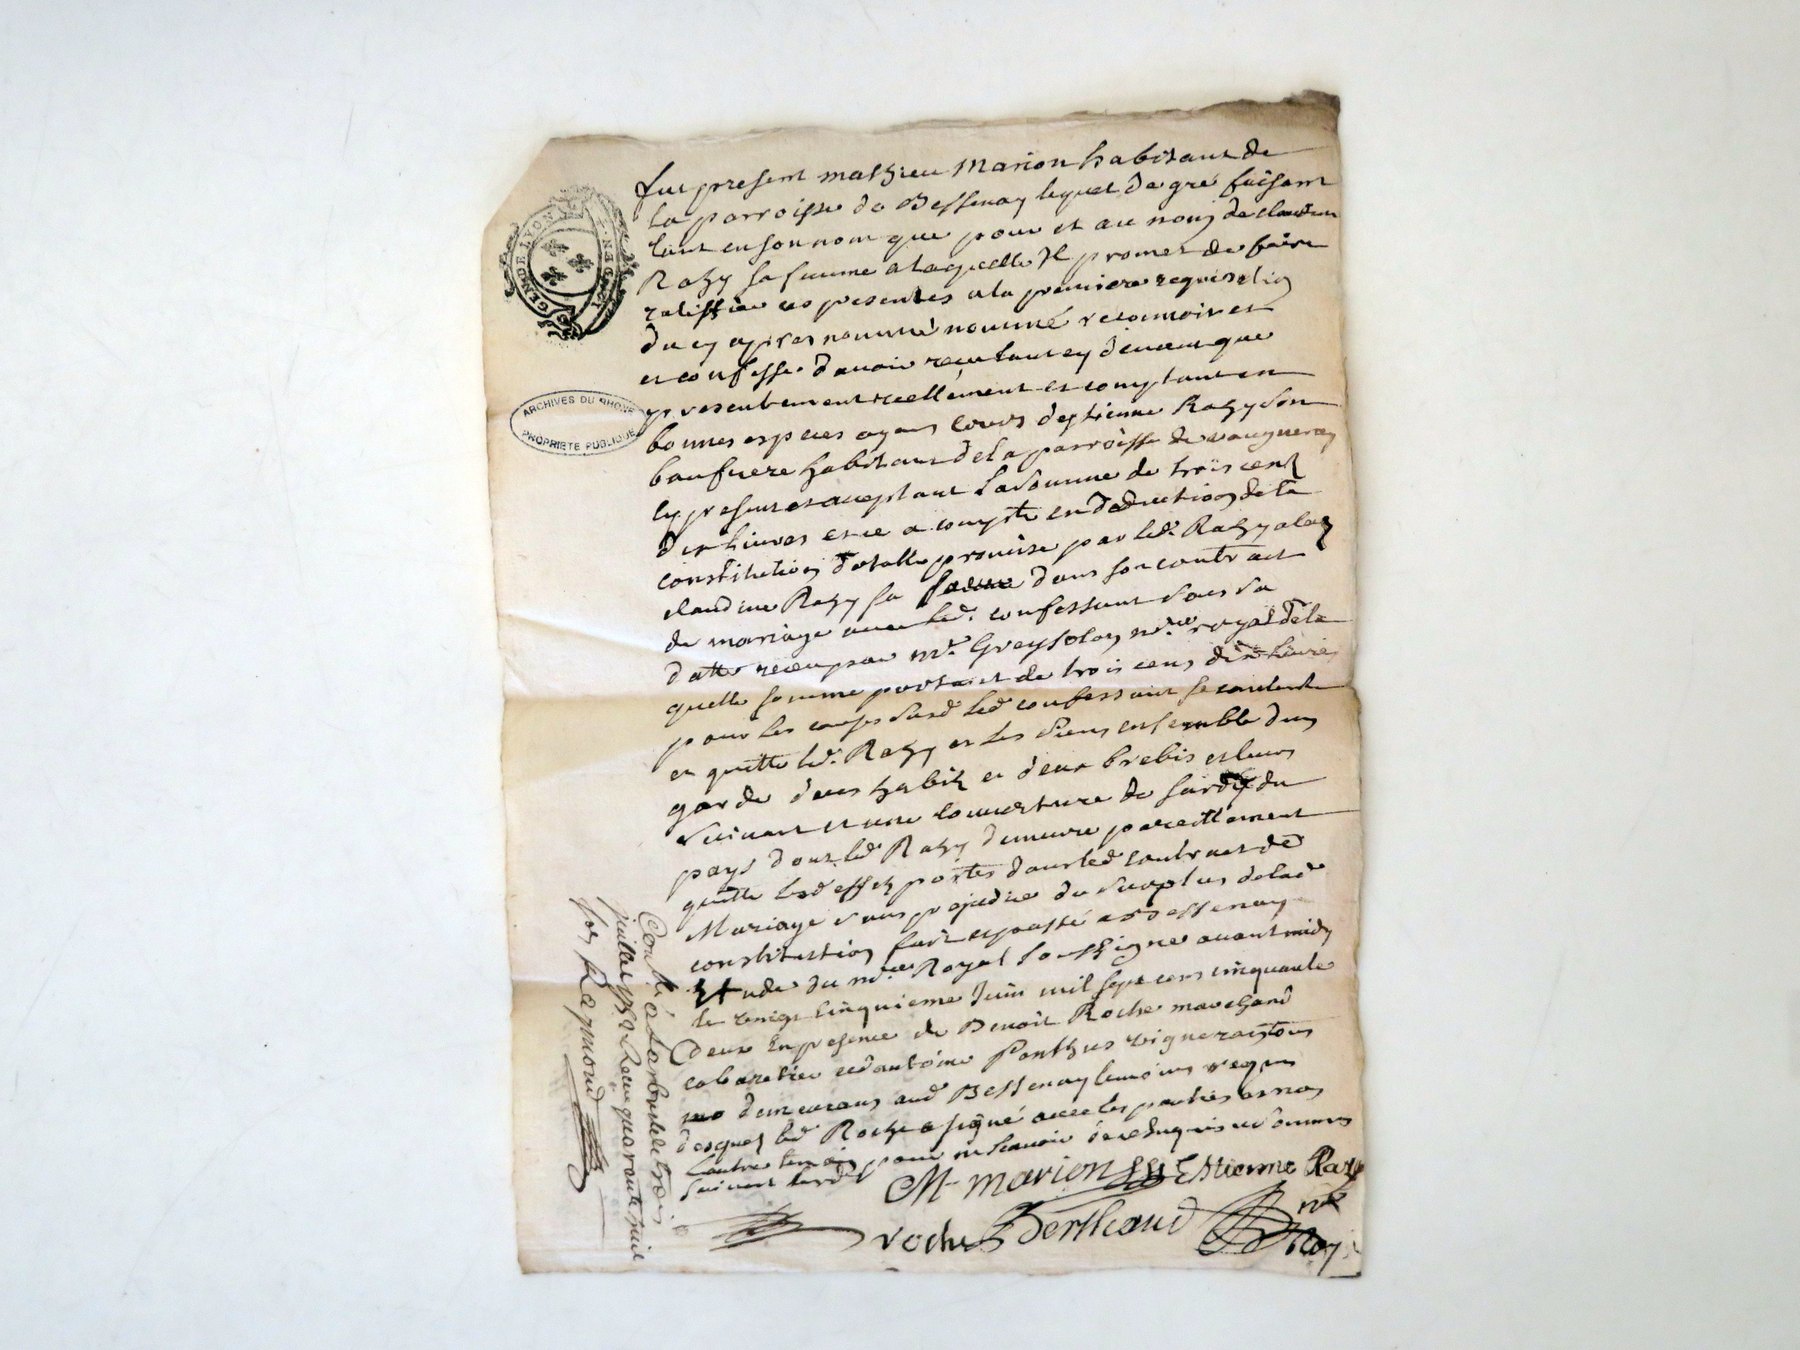 GEN. DE LYON
ARCHIVES DU RHONE
PROPRIETE PUBLIQUE
fut present mathieu Marion habitant de
la parroisse de Bessenay lequel de gré faisant
tant en son nom que pour et au nom de claudine
Razy sa femme a laquelle Il promet de faire
ratiffier ces presentes a la premiere requisition
du cy apres nommé nommé reconnoit et
et confesse davoir receu tant cy devant que
presentement reellement et comptant en
bonnes especes ayant cours destienne Razy son
baufrere habitant de la parroisse de vaugneray
cy present et acceptant la somme de trois cent
dix livres et ce a compte en deduction de la
constitution dotalle promise par led. Razy a lad
claudine Razy sa dans son contract
de mariage avec led. confessant sous sa
datte receu par mr. Greysolon nre. royal de la
quelle somme portant de trois cens dix livres
pour les causes susd led confessant se contente
et quitte led. Razy et les siens ensemble dun
garde deux habit et deux brebis et leurs
suivant et une couverture de du
pays dont led Razy demeure pareillement
quitte lesd effets portés dans led contract de
Mariage sans prejudice du surplus de lad
constitution fait et passé a Bessenay
Etude du nre. Royal soussigné avant midy
le vingt cinquieme Juin mil sept cens cinquante
deux En presence de Benoit Roche marchand
cabaretier et dantoine Ponthus vigneron tous
demeurans aud Bessenay temoins requis
desquels led Roche a signé avec les parties et non
lautre temoin pour ne scavoir de ce Enquis et sommés
suivant lord
M marion Estienne Razy
roche Berthaud nre
Roy
Conlé à Larbresle le trois
juillet 1752 Receu quarante huit
sols Regmond